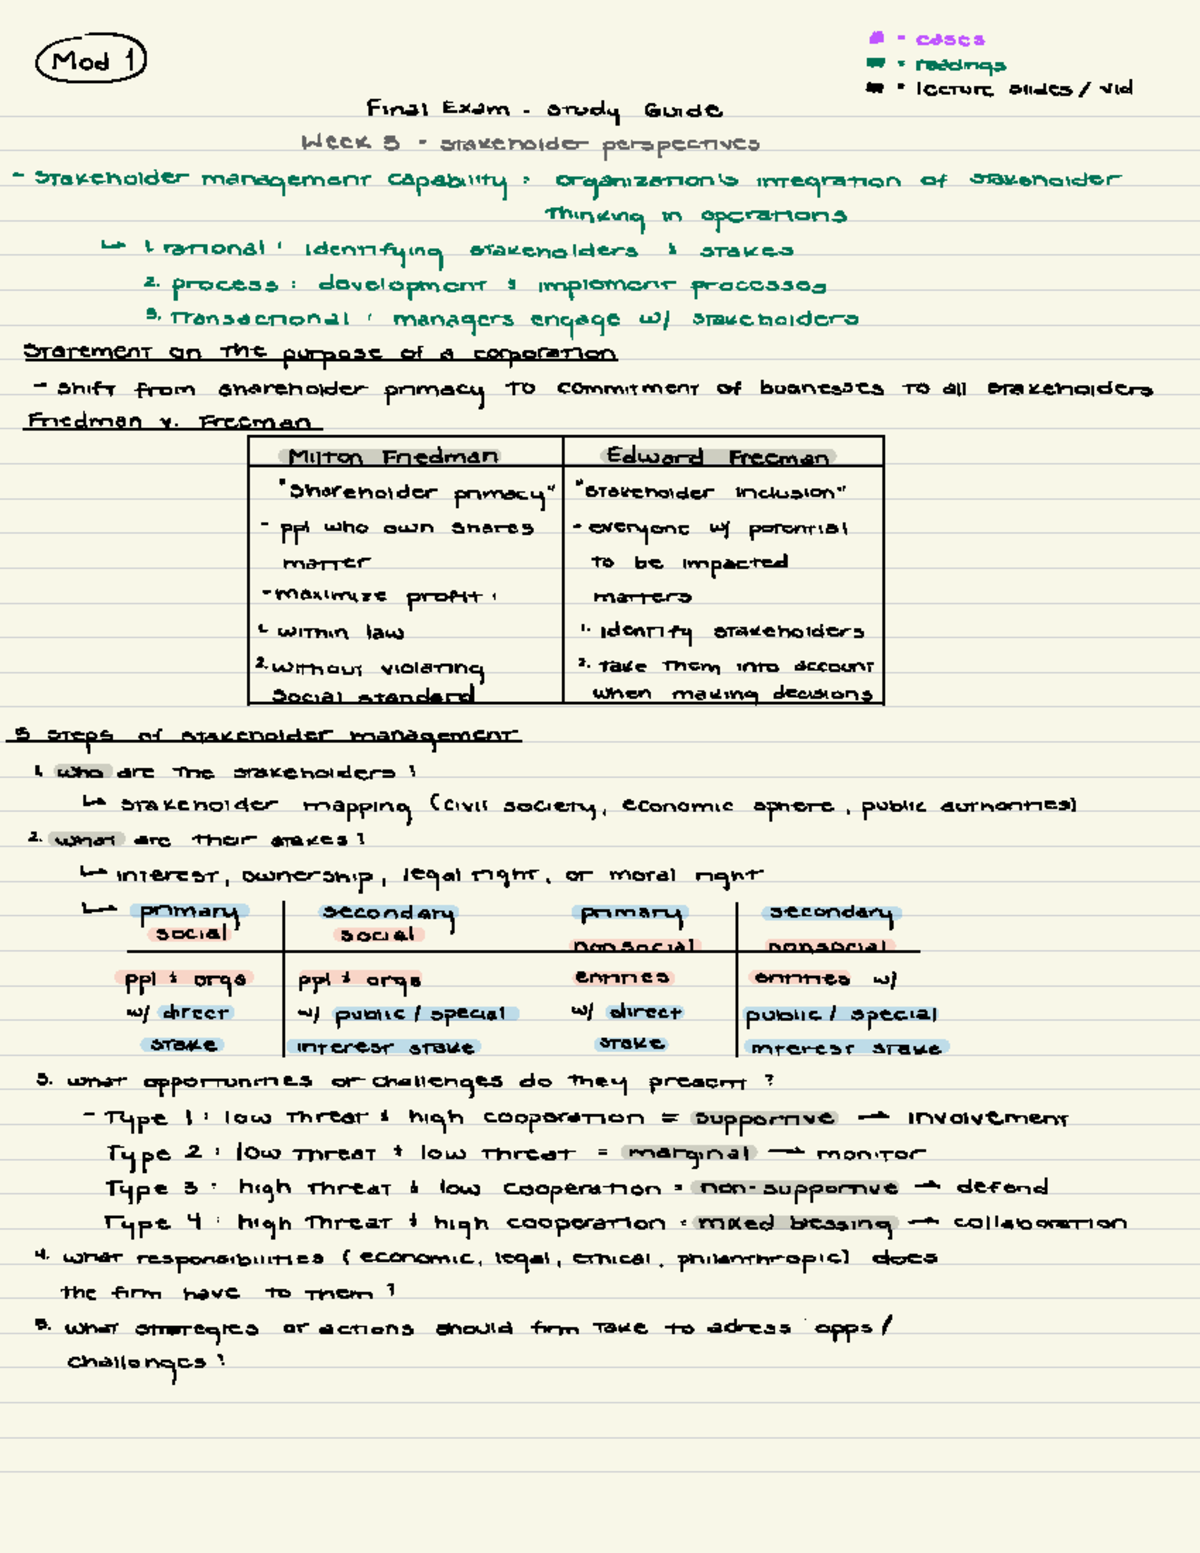 Mod 1
- cases
- readings
- lecture slides / vid
Final Exam - Study Guide
Week 3 - stakeholder perspectives
- Stakeholder management capability : organization's integration of stakeholder
thinking in operations
↳ 1. rational : identifying stakeholders & stakes
2. process : development & implement processes
3. Transactional : managers engage w/ stakeholders
Statement on the purpose of a corporation
- shift from shareholder primacy to commitment of businesses to all stakeholders
Friedman v. Freeman
Milton Friedman
Edward Freeman
"Shareholder primacy"
"Stakeholder inclusion"
- ppl who own shares
matter
- everyone w/ potential
to be impacted
matters
- maximize profit :
1. within law
2. without violating
social standard
1. identify stakeholders
2. take them into account
when making decisions
5 steps of stakeholder management
1. who are the stakeholders ?
↳ stakeholder mapping (civil society, economic sphere, public authorities)
2. what are their stakes ?
↳ interest, ownership, legal right, or moral right
↳ primary social
secondary social
primary nonsocial
secondary nonsocial
ppl & orgs
w/ direct
stake
ppl & orgs
w/ public / special
interest stake
entities
w/ direct
stake
entities w/
public / special
interest stake
3. what opportunities or challenges do they present ?
- Type 1 : low threat & high cooperation = supportive → involvement
Type 2 : low threat & low threat = marginal → monitor
Type 3 : high threat & low cooperation = non-supportive → defend
Type 4 : high threat & high cooperation = mixed blessing → collaboration
4. what responsibilities (economic, legal, ethical, philanthropic) does
the firm have to them ?
5. what strategies or actions should firm take to adress opps /
challenges ?